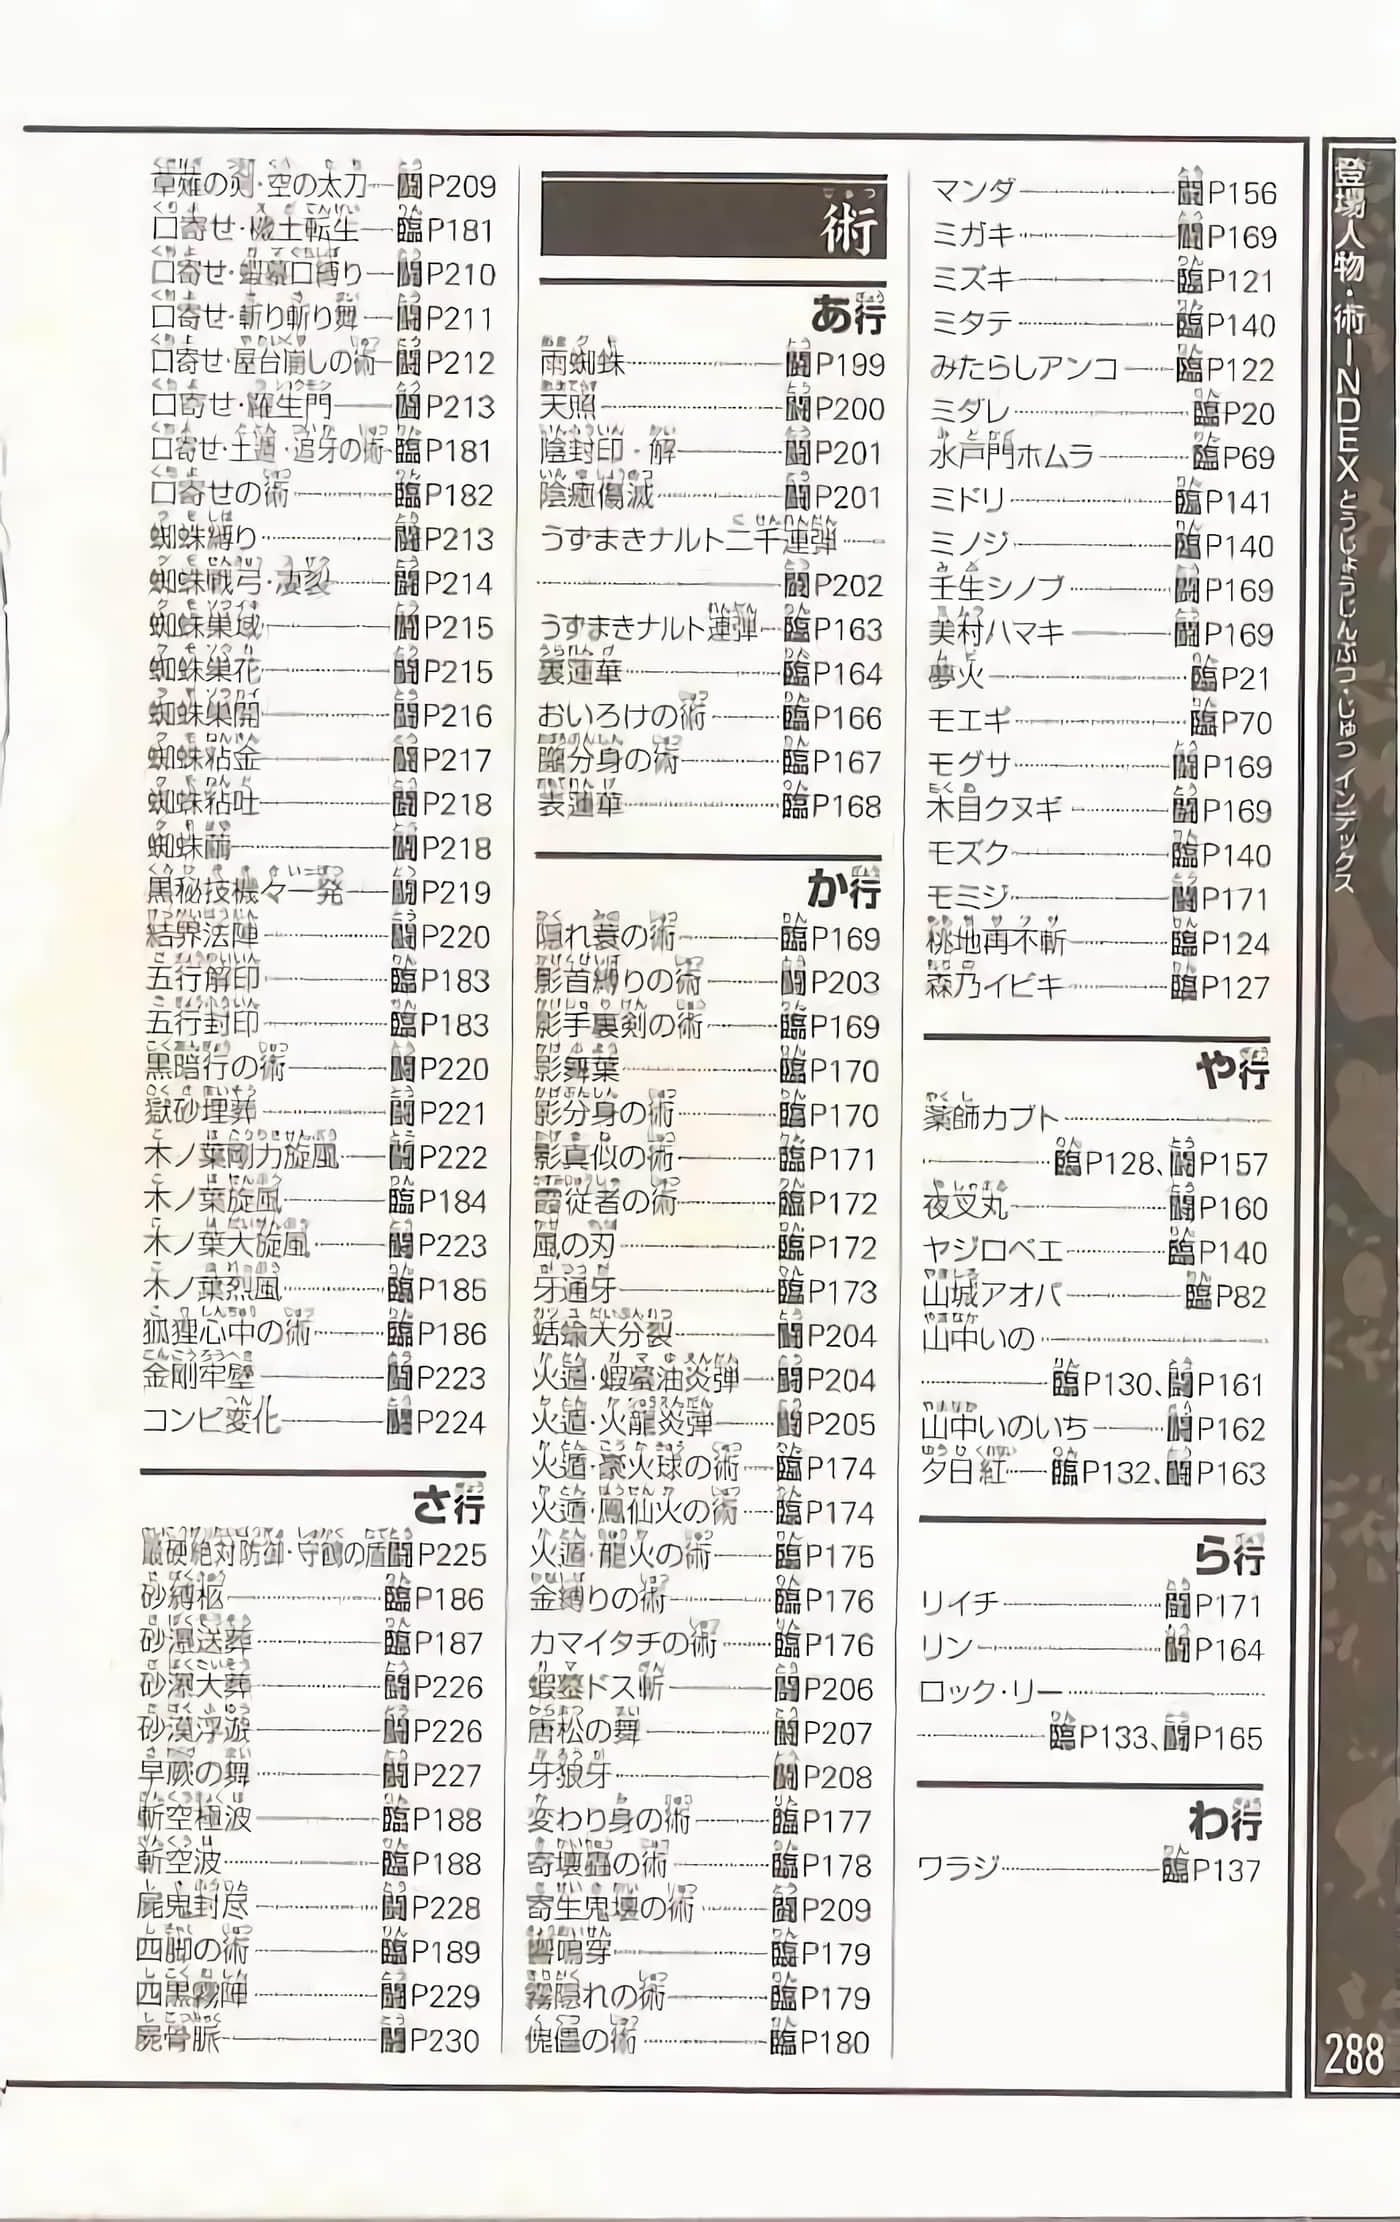 登場人物・術INDEX とうじょうじんぶつ・じゅつ インデックス
288
マンダ 闘P156
ミガキ 闘P169
ミズキ 臨P121
ミタテ 臨P140
みたらしアンコ 臨P122
ミダレ 臨P20
水戸門ホムラ 臨P69
ミドリ 臨P141
ミノジ 臨P140
壬生シノブ 闘P169
美村ハマキ 闘P169
夢火 臨P21
モエギ 臨P70
モグサ 闘P169
木目クヌギ 闘P169
モズク 臨P140
モミジ 闘P171
桃地再不斬 臨P124
森乃イビキ 臨P127
や行
薬師カブト
臨P128、闘P157
夜叉丸 闘P160
ヤジロベエ 臨P140
山城アオバ 臨P82
山中いの
臨P130、闘P161
山中いのいち 闘P162
夕日紅 臨P132、闘P163
ら行
リイチ 闘P171
リン 闘P164
ロック・リー
臨P133、闘P165
わ行
ワラジ 臨P137
術
あ行
雨蜘蛛 闘P199
天照 闘P200
陰封印・解 闘P201
陰癒傷滅 闘P201
うずまきナルト二千連弾
闘P202
うずまきナルト連弾 臨P163
裏蓮華 臨P164
おいろけの術 臨P166
朧分身の術 臨P167
表蓮華 臨P168
か行
隠れ蓑の術 臨P169
影首縛りの術 闘P203
影手裏剣の術 臨P169
影舞葉 臨P170
影分身の術 臨P170
影真似の術 臨P171
霞従者の術 臨P172
風の刃 臨P172
牙通牙 臨P173
蛞蝓大分裂 闘P204
火遁・蝦蟇油炎弾 闘P204
火遁・火龍炎弾 闘P205
火遁・豪火球の術 臨P174
火遁・鳳仙火の術 臨P174
火遁・龍火の術 臨P175
金縛りの術 臨P176
カマイタチの術 臨P176
蝦蟇ドス斬 闘P206
唐松の舞 闘P207
牙狼牙 闘P208
変わり身の術 臨P177
寄壊蟲の術 臨P178
寄生鬼壊の術 闘P209
響鳴穿 臨P179
霧隠れの術 臨P179
傀儡の術 臨P180
草薙の剣・空の太刀 闘P209
口寄せ・穢土転生 臨P181
口寄せ・蝦蟇口縛り 闘P210
口寄せ・斬り斬り舞 闘P211
口寄せ・屋台崩しの術 闘P212
口寄せ・羅生門 闘P213
口寄せ・土遁・追牙の術 臨P181
口寄せの術 臨P182
蜘蛛縛り 闘P213
蜘蛛戦弓・凄裂 闘P214
蜘蛛巣域 闘P215
蜘蛛巣花 闘P215
蜘蛛巣開 闘P216
蜘蛛粘金 闘P217
蜘蛛粘吐 闘P218
蜘蛛繭 闘P218
黒秘技機々一発 闘P219
結界法陣 闘P220
五行解印 臨P183
五行封印 臨P183
黒暗行の術 闘P220
獄砂埋葬 闘P221
木ノ葉剛力旋風 闘P222
木ノ葉旋風 臨P184
木ノ葉大旋風 闘P223
木ノ葉烈風 臨P185
狐狸心中の術 臨P186
金剛牢壁 闘P223
コンビ変化 闘P224
さ行
最硬絶対防御・守鶴の盾 闘P225
砂縛柩 臨P186
砂瀑送葬 臨P187
砂瀑大葬 闘P226
砂漠浮遊 闘P226
早蕨の舞 闘P227
斬空極波 臨P188
斬空波 臨P188
屍鬼封尽 闘P228
四脚の術 臨P189
四黒霧陣 闘P229
屍骨脈 闘P230